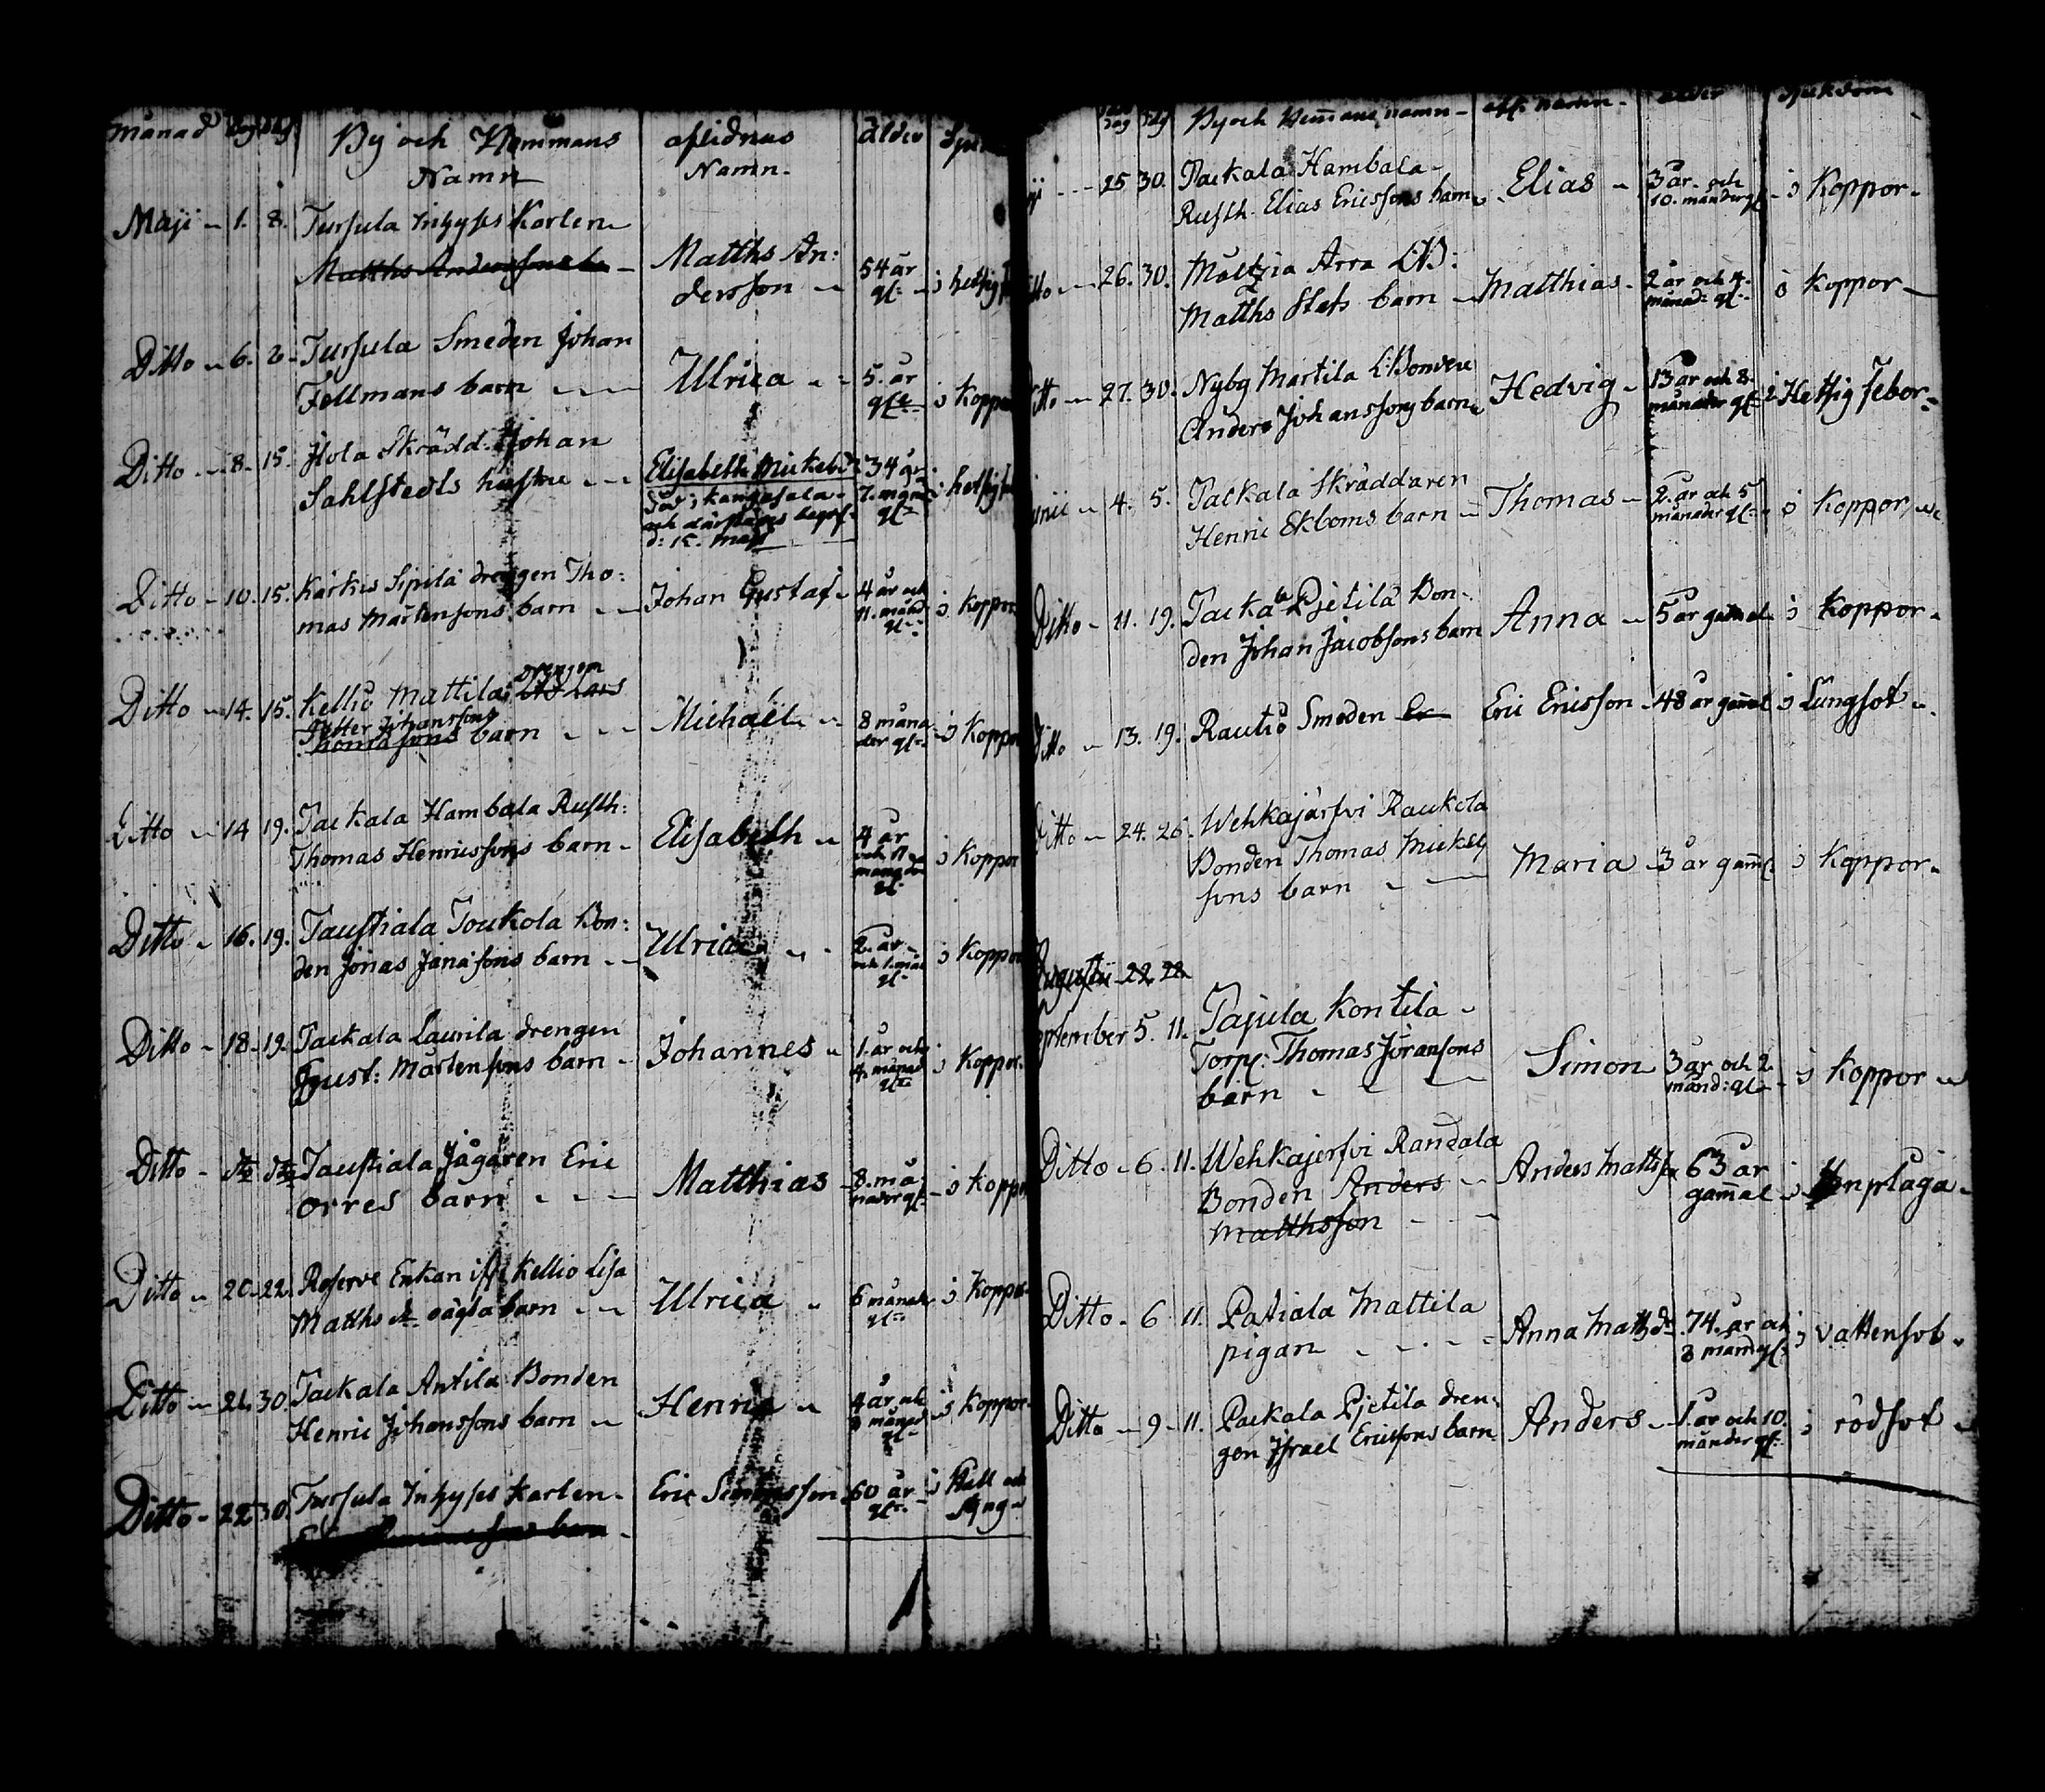 Månad
By och Hemmans
Namn
aflidnas
Namn.
ålder
Maji 1. 8. Tursula inhyses Karlen
Matths Anderssons
Matths An:
dersson
54 år
gl: i hetsig
Ditto 6. 8. Tursula Smeden Johan
Fellmans barn
Ulrica
5. år
gl: i Koppor
Ditto 8. 15. Skrädd. Johan
Sahlstedts hustru
Elisabeth Mickelsdr
död i kangasala
och därstädes begrof.
d: 15. Maji
34 år
7. mån
gl: i hetsig
Ditto 10. 15. Karkus Sipilä drengen Tho:
mas Mårtensons barn
Johan Gustaf
4 år och
11. månd
gl: i koppor
Ditto 14. 15. Kellio Mattila drengen
Petter Johanssons
Thomasons barn
Michaël
8 måna
der gl: i Koppor
Ditto 14 19. Packala Hambala Rusth:
Thomas Henricssons barn
Elisabeth
4 år
i Koppor
Ditto 16. 19. Taustiala Toukola Bon:
den Jonas Jonasons barn
Ulrica
2. år
och 1. mån
gl: i Koppor
Ditto 18. 19. Packala Laurila drengen
Gust: Mårtensons barn
Johannes
1. år och
4. månad
gl: i Koppor.
Ditto Taustiala Jägaren Eric
Orres barn
Matthias
8. må
nader gl: i Koppor
Ditto 20. 22. Reserve Enkan Kellio Lisa
Matths dr oägta barn
Ulrica
6 månad
gl: i Koppor
Ditto 21. 30. Packala Antila Bonden
Henric Johanssons barn
Henric
4 år och
månad
gl: i Koppor.
Ditto 22 30. Tursula Inhyses Karlen
barn
Eric Simonsson
60 år
gl: i Håll och
Styng
By och Hemmans namn
afl. namn
ålder
Sjukdom
25 30. Packala Hambala
Rusth. Elias Ericssons barn
Elias
3 år och
10. månader gl: i Koppor
Ditto 26. 30. Mältzia Arra LB:
Matths Stats barn
Matthias
2 år och 4
månad: gl: i Koppor
Ditto 27. 30. Nyby Martila L:Bonden
Anders Johanssons barn
Hedvig
13 år och 8.
månader gl: i Hetsig Feber
Junii 4. 5. Packala Skräddaren
Henric Ekboms barn
Thomas
2. år och 5
månader gl: i Koppor
Ditto 11. 19. Packala Pjetilä Bon
den Johan Jacobsons barn
Anna
5 år gamal i Koppor
Ditto 13. 19. Rautio Smeden Er
Eric Ericsson
48 år gamal i Lungsot
Ditto 24. 26. Wehkajärfvi Raukola
Bonden Thomas Mickels
sons barn
Maria
3 år gaml: i Koppor
Augustii 22 22
September 5. 11. Pajula Kontila
Torp: Thomas Göransons
barn
Simon
3 år och 2
månd: gl: i Koppor
Ditto 6. 11. Wehkajerfvi Randala
Bonden Anders
Matthsson
Anders Mattsson
63 år
gamal i Stenplåga
Ditto 6 11. Patiala Mattila
pigan
Anna Matthsdr
74. år och
8 mån gl: i vattensot
Ditto 9 11. Packala Pjetila dren
gen Israel Ericssons barn
Anders
1. år och 10.
månader gl: i rödsot